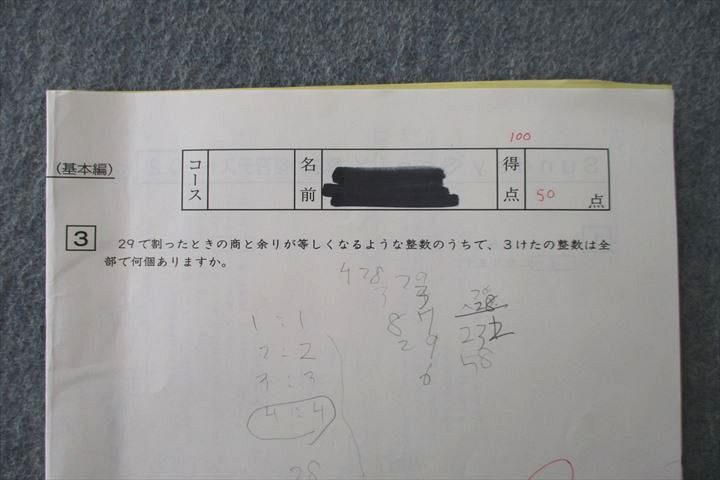 100
(基本編)
コース 名前 得点 50 点
3 29で割ったときの商と余りが等しくなるような整数のうちで、3けたの整数は全
部で何個ありますか。
428 29
3
87
29
6
28
232
58
1:1
2:2
3:3
4:4
28